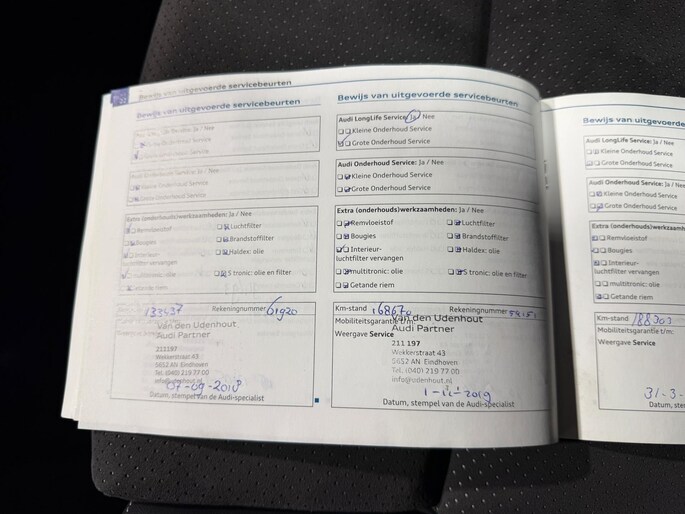 Bewijs van uitgevoerde servicebeurten
Bewijs van uitgevoerde servicebeurten
Ja / Nee
Onderhoud Service
Onderhoud Service
Audi Onderhoud Service: Ja / Nee
Kleine Onderhoud Service
Grote Onderhoud Service
Extra (onderhouds)werkzaamheden: Ja / Nee
Remvloeistof
Luchtfilter
Bougies
Brandstoffilter
Interieur-
luchtfilter vervangen
Haldex: olie
multitronic: olie
S tronic: olie en filter
Getande riem
133437
Rekeningnummer 61920
Van den Udenhout
Audi Partner
211197
Wekkerstraat 43
5652 AN Eindhoven
Tel. (040) 219 77 00
info@udenhout.nl
07-09-2018
Datum, stempel van de Audi-specialist
Bewijs van uitgevoerde servicebeurten
Audi LongLife Service: Ja / Nee
Kleine Onderhoud Service
Grote Onderhoud Service
Audi Onderhoud Service: Ja / Nee
Kleine Onderhoud Service
Grote Onderhoud Service
Extra (onderhouds)werkzaamheden: Ja / Nee
Remvloeistof
Luchtfilter
Bougies
Brandstoffilter
Interieur-
luchtfilter vervangen
Haldex: olie
multitronic: olie
S tronic: olie en filter
Getande riem
Km-stand 168670
Rekeningnummer
Mobiliteitsgarantie t/m:
Weergave Service
Van den Udenhout
Audi Partner
211 197
Wekkerstraat 43
5652 AN Eindhoven
Tel. (040) 219 77 00
info@udenhout.nl
1-12-2019
Datum, stempel van de Audi-specialist
Bewijs van uitgevoerde
Audi LongLife Service: Ja / Nee
Kleine Onderhoud Service
Grote Onderhoud Service
Audi Onderhoud Service: Ja /
Kleine Onderhoud Service
Grote Onderhoud Service
Extra (onderhouds)werkzaam
Remvloeistof
Bougies
Interieur-
luchtfilter vervangen
multitronic: olie
Getande riem
Km-stand 188303
Mobiliteitsgarantie t/m:
Weergave Service
31-3-
Datum, stem